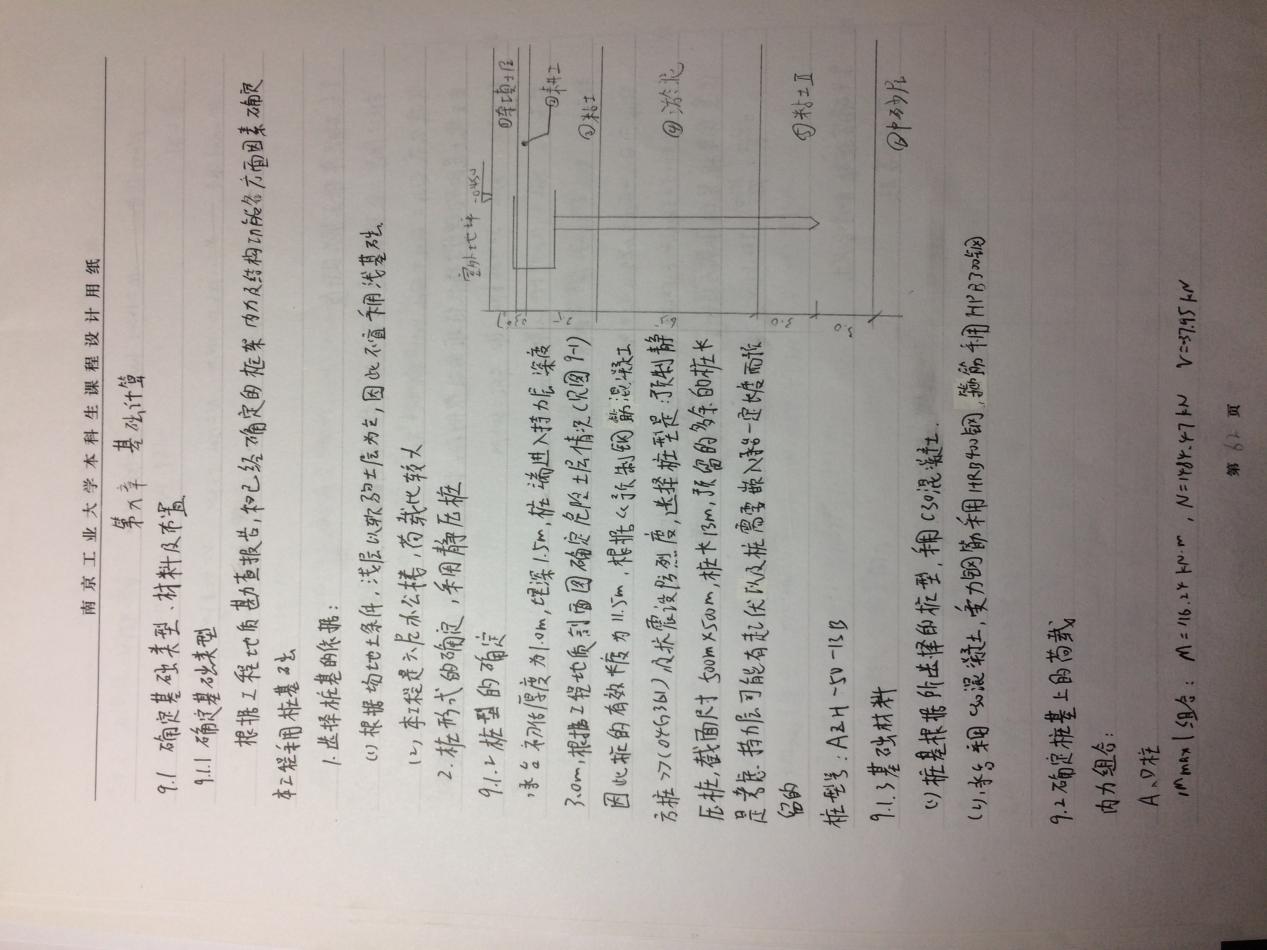 南京工业大学本科生课程设计用纸
第九章 基础计算
9.1 确定基础类型、材料及布置
9.1.1 确定基础类型
根据工程地质勘查报告,和已经确定的框架内力及结构功能各方面因素确定
本工程采用桩基础
1.选择桩基的依据:
(1) 根据场地土条件,浅层以软弱土层为主,因此不宜采用浅基础.
(2) 本工程是六层办公楼,荷载比较大
2.桩形式的确定,采用静压桩
9.1.2 桩型的确定
承台初估厚度为1.0m,埋深1.5m,桩端进入持力层深度
3.0m,根据工程地质剖面图确定危险土层情况(见图9-1)
因此桩的有效长度为11.5m,根据《预制钢筋混凝土
方桩》(04G361)及抗震设防烈度,选择桩型是:预制静
压桩,截面尺寸500m×500m,桩长13m,预留的多余的桩长
是考虑.持力层可能有起伏以及桩需要嵌入承台一定长度而预
留的
桩型号:AZH-50-13B
9.1.3 基础材料
(1) 桩基根据所选择的桩型,采用C30混凝土.
(2) 承台采用C30混凝土,受力钢筋采用HRB400钢,箍筋采用HPB300钢
9.2 确定桩基上的荷载
内力组合:
A、D柱
|Mmax|组合: M=116.24kN·m, N=1484.47kN V=-37.95kN
室外地坪 -0.450
①杂填土层
②耕土
③粘土
④淤泥
⑤粘土Ⅱ
⑥中砂层
3.0
3.0
第 62 页